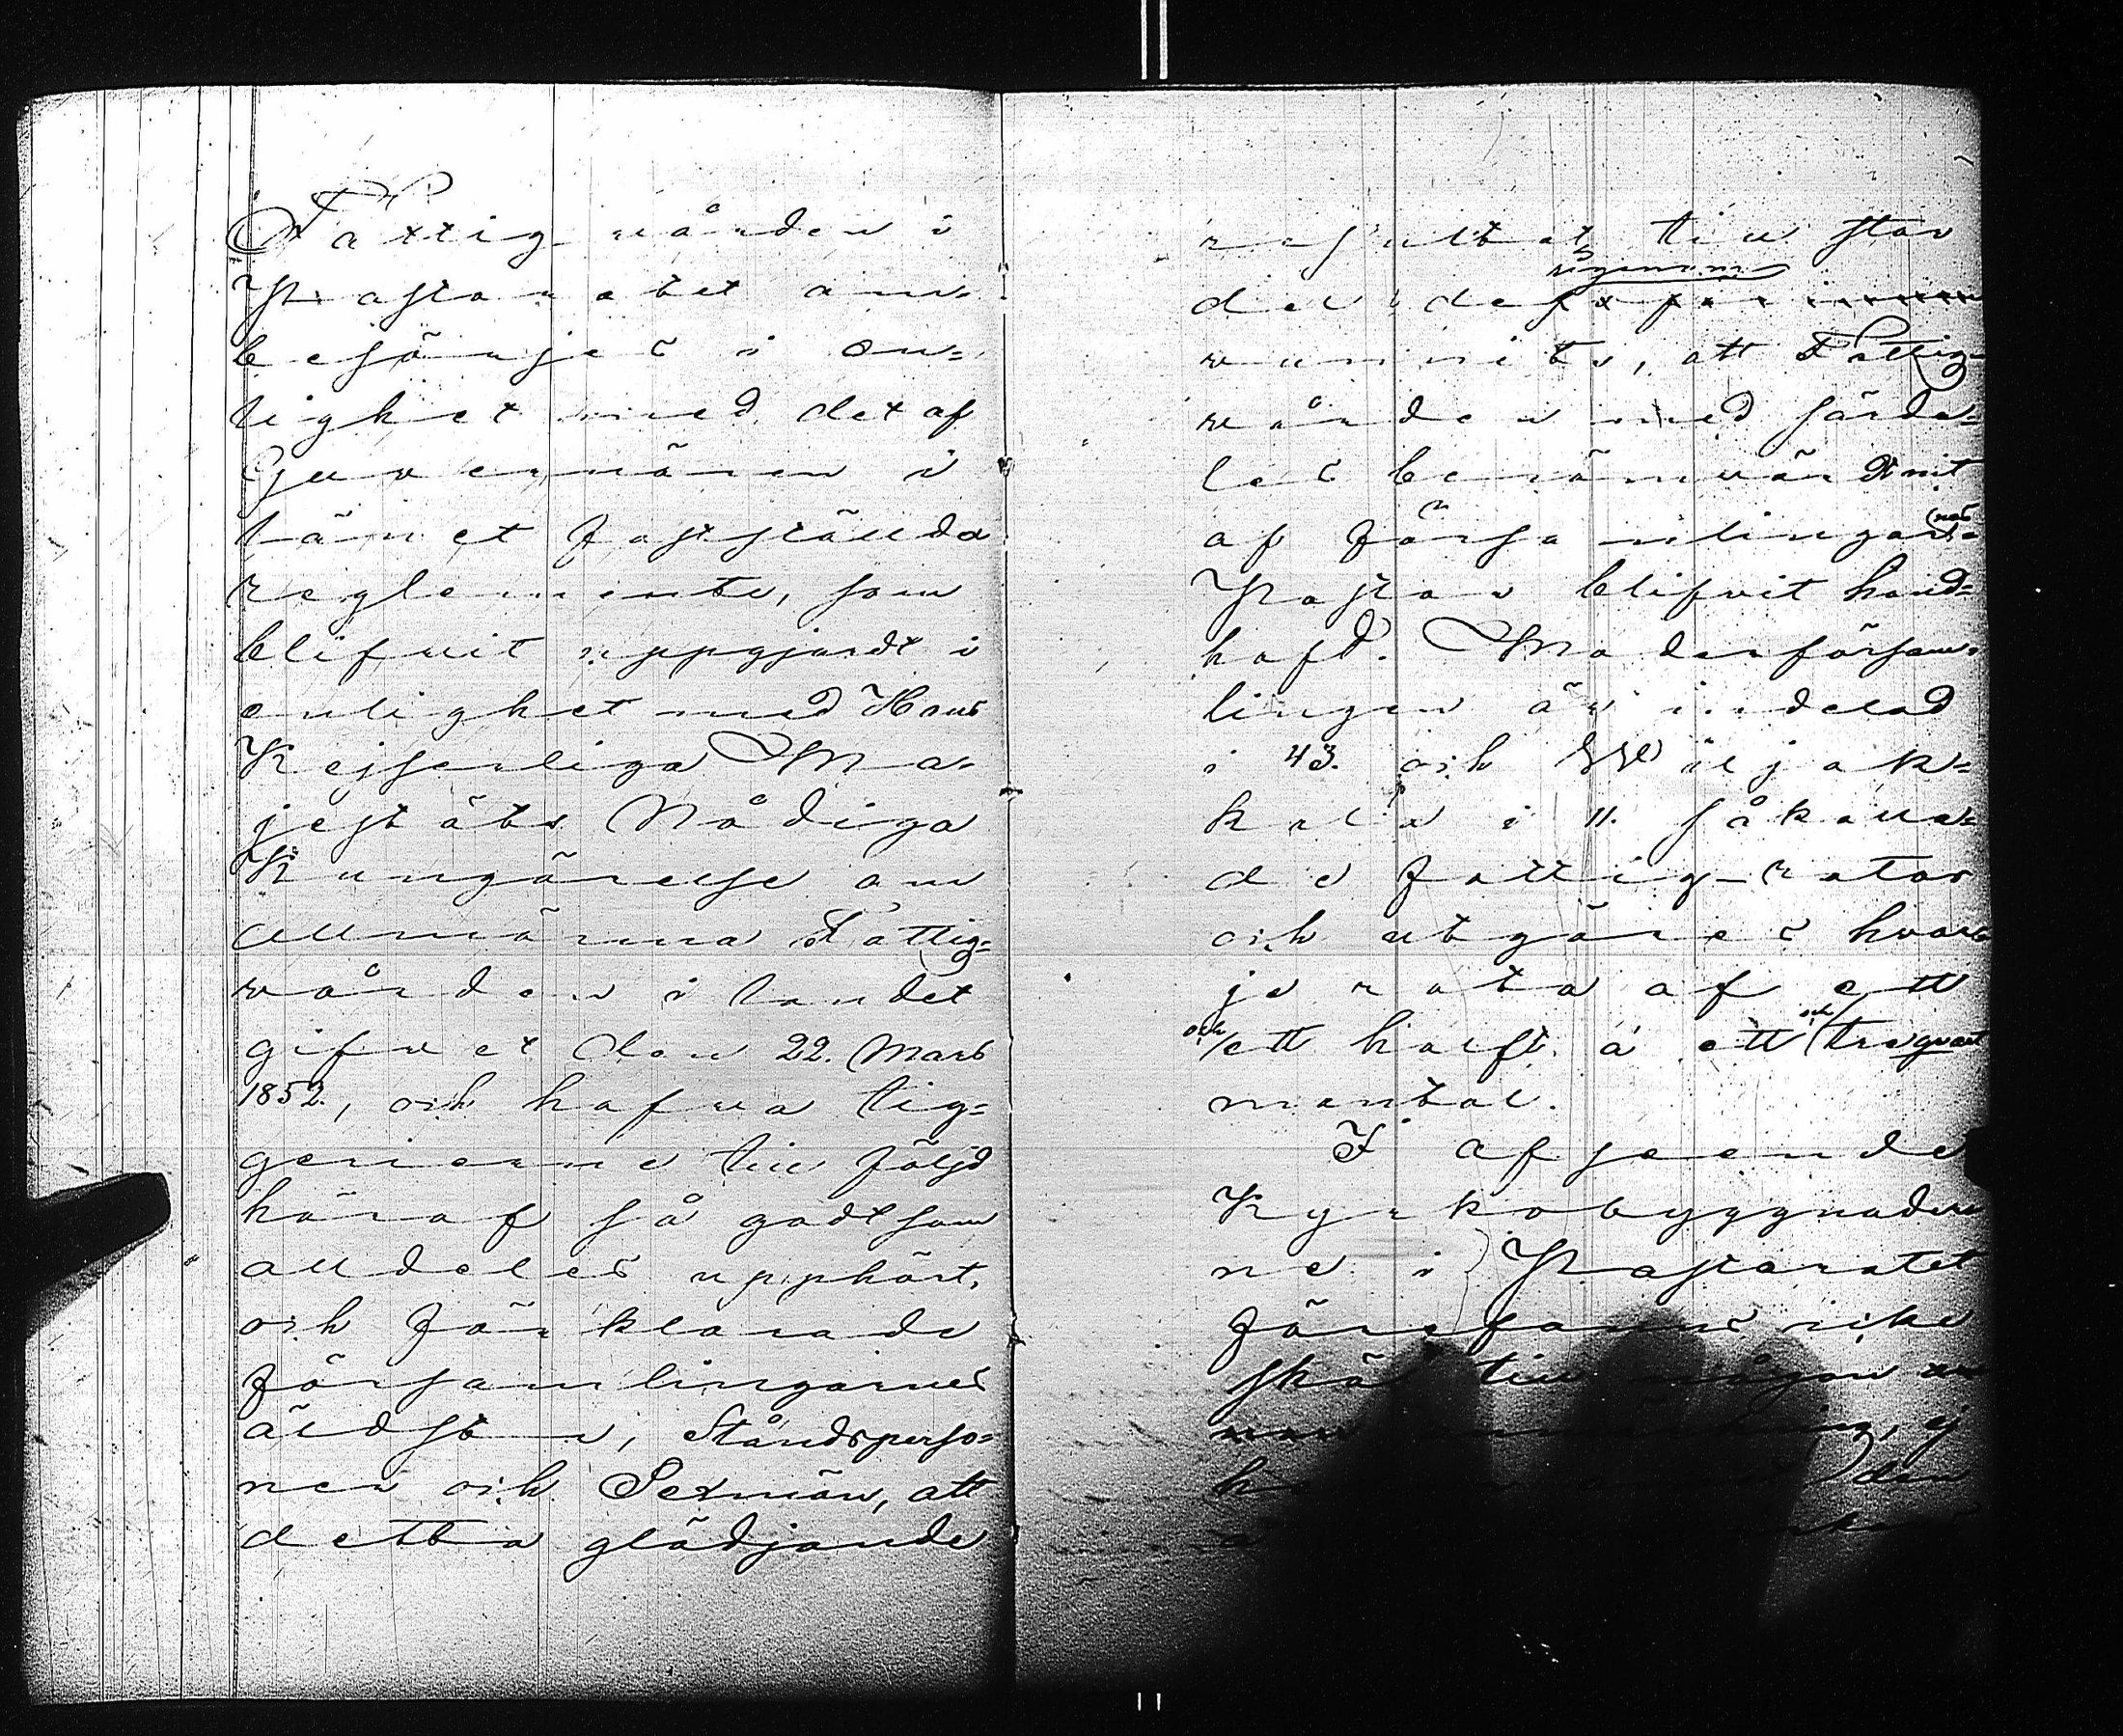 Fattigvården i
Pastoratet om-
besörjes i en-
lighet med det af
Guvernören i
länet fastställda
reglemente, som
blifvit uppgjordt i
enlighet med Hans
Kejserliga Ma-
jestäts Nådiga
Kungörelse om
allmänna Fattig-
vården i landet
gifvet den 22. Mars
1852., och hafva tig-
gerierne till följd
häraf så godt som
alldeles upphört,
och förklarade
församlingarnes
äldste, Ståndsperso-
ner och Sexmän, att
detta glädjande
resultat till stor
del derigenom
vunnits, att Fattig-
vården med särde-
les berömvärdt nit
af församlingarnes
Pastor blifvit hand-
hafd. Moderförsam-
lingen är indelad
i 43. och Wiljak-
kala i 11. såkalla-
de fattig-rotar
och utgöres hvar-
je rota af ett
och ett halft á ett och tre quart
mantal.
I afseende
Kyrkobyggnader-
ne i Pastoratet
förefanns icke
skäl till någon an
ej
den